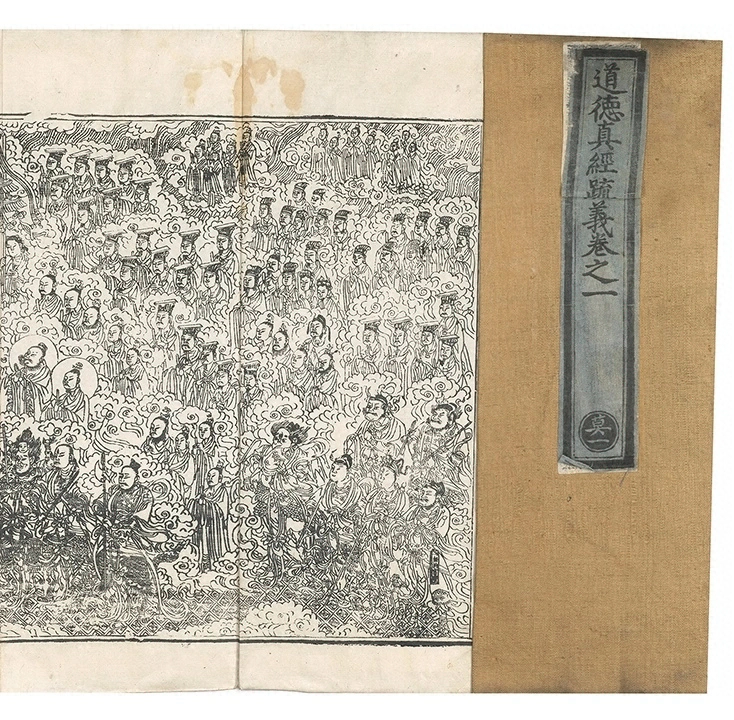 道德真經疏義卷之一